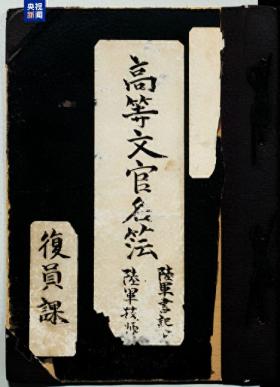 央视
新闻
高等文官名簿
陸軍書記
陸軍技师
復員課